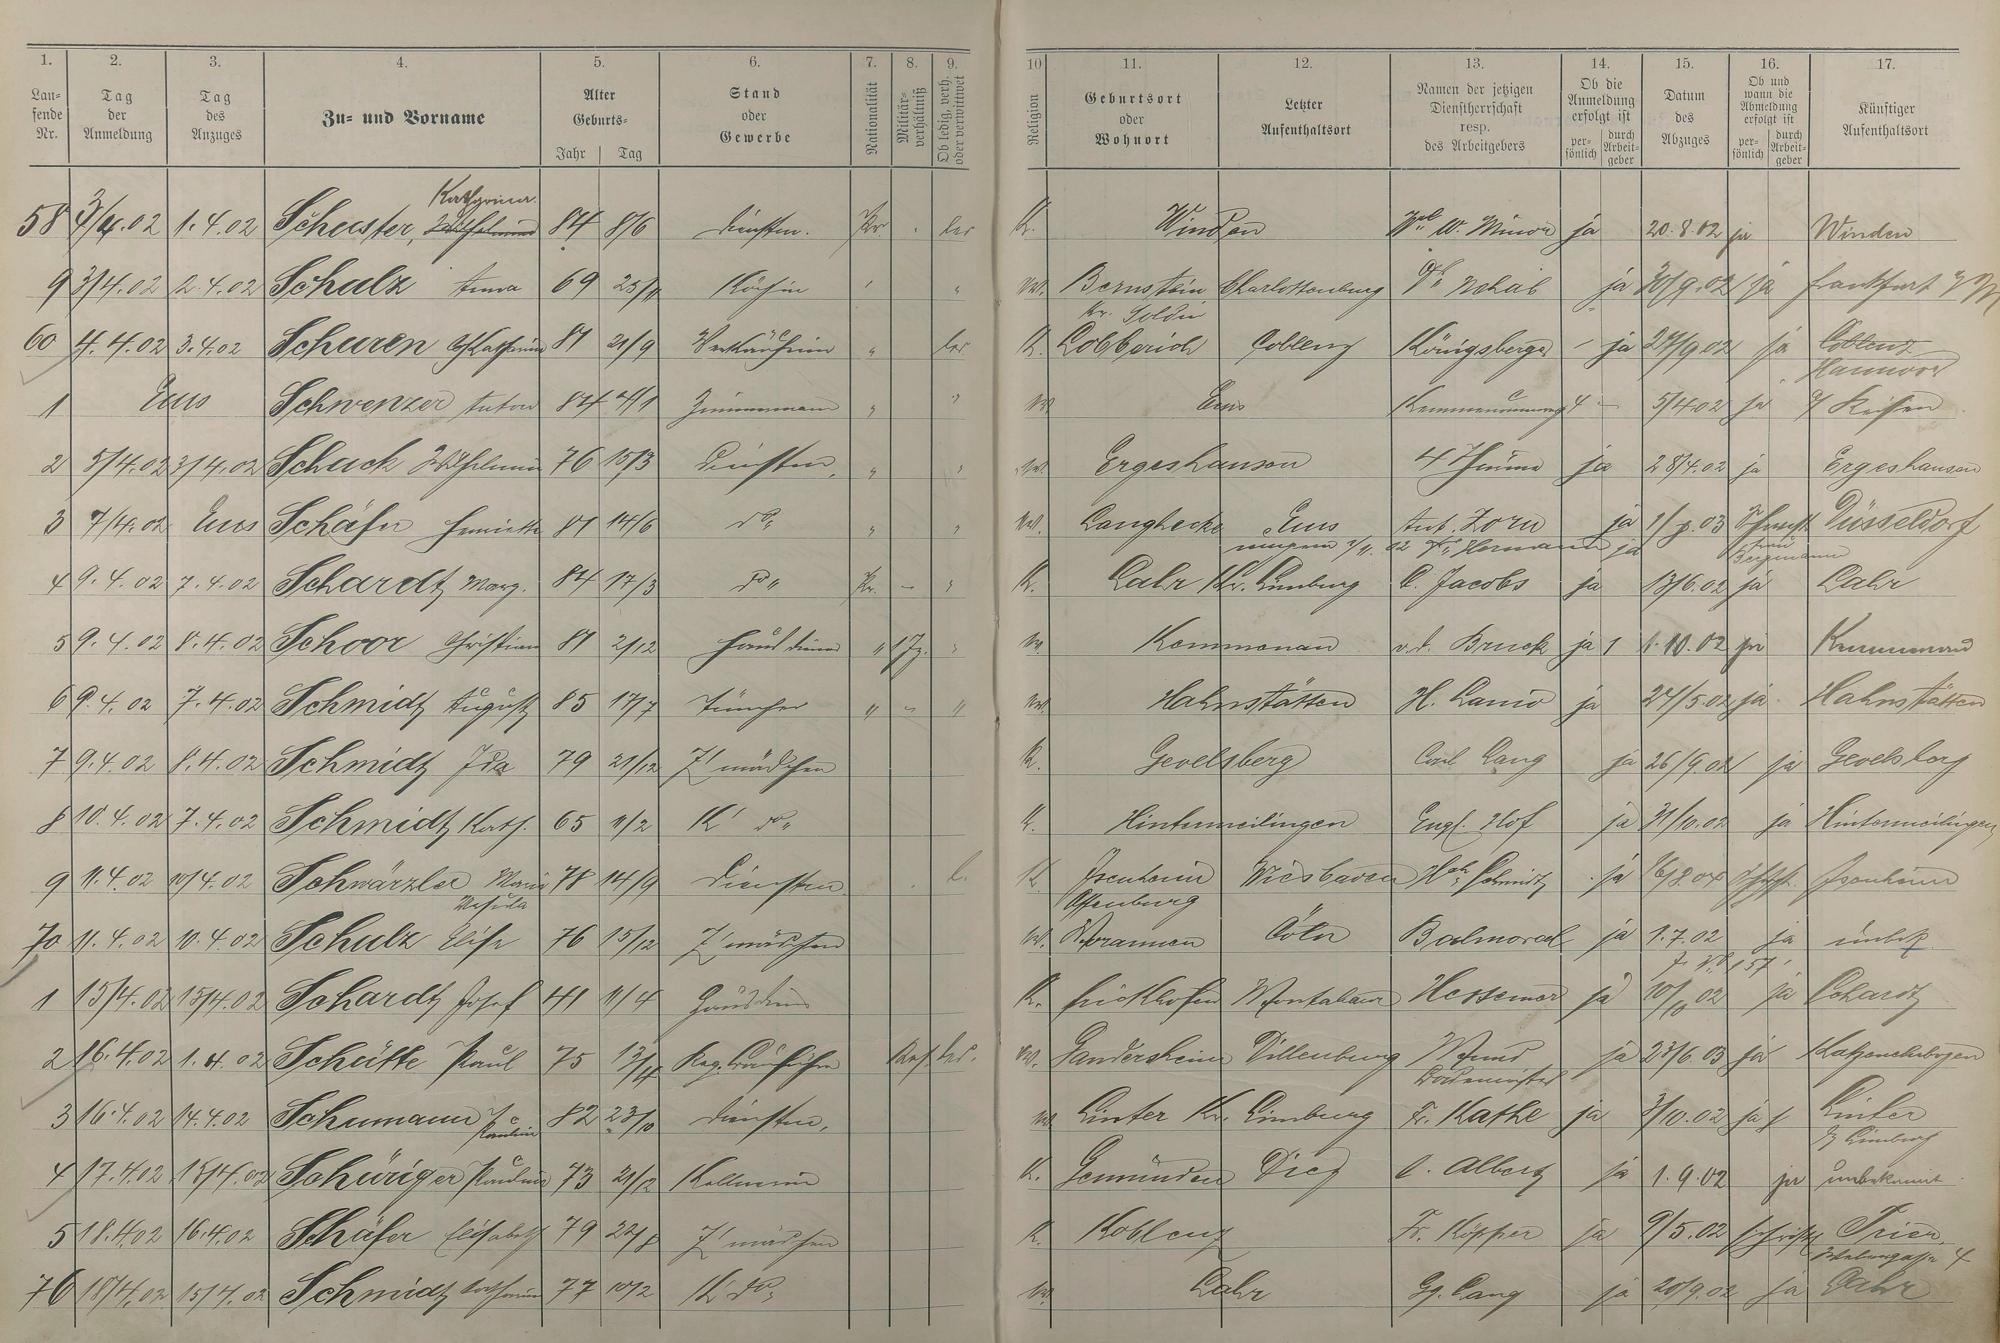 1. 2. 3. 4. 5. 6. 7. 8. 9. 10 11. 12. 13. 14. 15. 16. 17.
Lau-
fende
Nr.
Tag
der
Anmeldung
Tag
des
Anzuges
Zu- und Vorname
Alter
Geburts-
Jahr Tag
Stand
oder
Gewerbe
Nationalität
Militär-
verhältniß
Ob ledig, verh.
oder verwittwet
Religion
Geburtsort
oder
Wohnort
Letzter
Aufenthaltsort
Namen der jetzigen
Dienstherrschaft
resp.
des Arbeitgebers
Ob die
Anmeldung
erfolgt ist
per-
sönlich
durch
Arbeit-
geber
Datum
des
Abzuges
Ob und
wann die
Abmeldung
erfolgt ist
per-
sönlich
durch
Arbeit-
geber
Künftiger
Aufenthaltsort
Katharina
58 3/4.02 1.4.02 Schuster, 84 8/6 Dienstm. Pr. led K. Winden W. Minor ja 20.8.02 ja Winden
9 3/4.02 2.4.02 Schulz Anna 69 Köchin " " Bernstein Charlottenburg ja 30/9.02 ja Frankfurt
Kr. Soldin
60 4.4.02 3.4.02 Schuren Katharina 81 21/9 Verkäuferin " led K. Lobberich Coblenz Königsberger - ja 27/9 02 ja Coblenz
Hannover
1 Ems Schwenzer Anton 84 Zimmermann " " Ems 5/4.02 ja
2 5/4.02 3/4.02 Schuck Wilhelmine 76 15/3 Dienstm. " " Ergeshausen ja 28/4.02 ja Ergeshausen
3 7/4.02 Ems Schäfer Henriette 81 14/6 do " " Langhecke Ems Ant. Zorn ja Düsseldorf
Hermann ja Bergmann
4 9.4.02 7.4.02 Schardt Marg. 84 17/3 do " Pr. - " K. Lahr Kr. Limburg C. Jacobs ja 13/6.02 ja Lahr
5 9.4.02 8.4.02 Schoor Christian 81 2/12 Hausdiener " " Kemmenau v.d. Bruck ja 1.10.02 ja Kemmenau
6 9.4.02 7.4.02 Schmidt August 85 17/7 Tüncher " - " Hahnstätten H. Lanio ja 27/5.02 ja Hahnstätten
7 9.4.02 8.4.02 Schmidt Ida 79 21/12 Z' mädchen K. Gevelsberg Carl Lang ja 26/9.02 ja Gevelsberg
8 10.4.02 7.4.02 Schmidt Kath. 65 11/2 K' do " K. Hintermeilingen Engl. Hof ja 31/10.02 ja Hintermeilingen
9 11.4.02 10/4.02 Schwärzler Maria 78 14/9 Dienstm. l. K. Isenheim Wiesbaden Schmidt ja Isenheim
Offenburg
70 11.4.02 10.4.02 Schulz Elise 76 15/12 Z' mädchen Cöln Balmoral ja 1.7.02 ja unbek.
1 15/4.02 15/4.02 Schardt Josef 41 11/4 Hausdien K. Frickhofen Montabaur Hessemer ja 02 ja
2 16.4.02 1.4.02 Schütte Paul 75 13/4 Reg. Bauführer led. Gandersheim Dillenburg ja 23/6.03 ja Katzenelnbogen
3 16.4.02 14.4.02 Schumann 82 23/10 Dienstm. Linter Kr. Limburg Fr. Kathe ja 3/10.02 ja Linter
b/ Limburg
4 17.4.02 15/4.02 Schüriger Pauline 73 21/12 Kellnerin K. Gemünden Diez C. Albert ja 1.9.02 ja unbekannt
5 18.4.02 16.4.02 Schäfer Elisabeth 79 22/8 Z' mädchen K. Koblenz Fr. Küpper ja 9/5.02 schriftl Trier,
76 18/4.02 15/4.02 Schmidt Katharine 77 10/2 K' do " Lahr Gg. Lang ja 20/9.02 ja Lahr